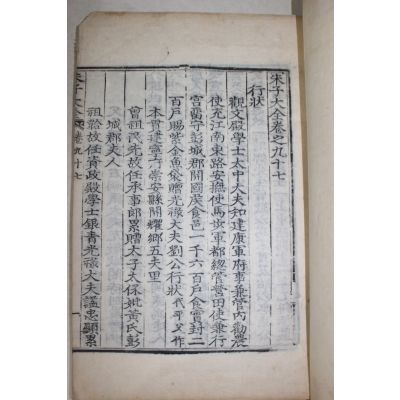 朱子大全卷之九十七
行狀
觀文殿學士太中大夫知建康軍府事兼管內勸農
使充江南東路安撫使馬步軍都總管營田使兼行
宮留守彭城郡開國侯食邑一千六百戶食實封二
百戶賜紫金魚袋贈光祿大夫劉公行狀 代平父作
本貫建寧府崇安縣開耀鄉五夫里
曾祖民先故任承事郎累贈太子太保妣黃氏彭
城郡夫人
祖韐故任資政殿學士銀青光祿大夫謚忠顯累
朱子大全 卷九十七
一